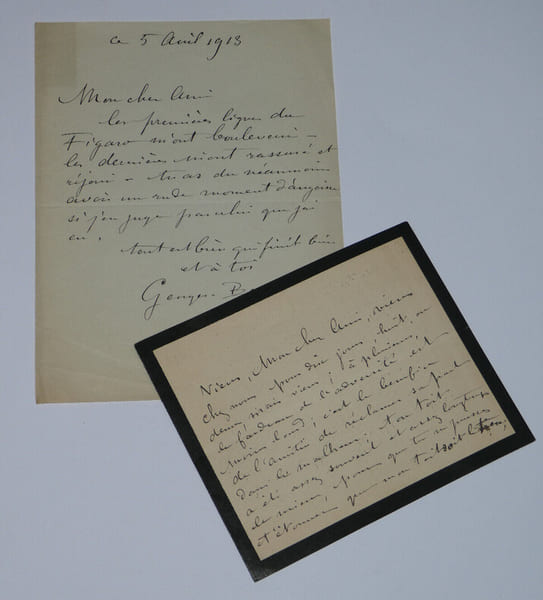 ce 5 Avril 1913
Mon cher Ami
les premières lignes du
Figaro m'ont bouleversé –
les dernières m'ont rassuré et
réjoui – tu as dû néanmoins
avoir un rude moment d'angoisse
si j'en juge par celui que j'ai
eu.
tout est bien qui finit bien
et à toi
Georges
Viens, Mon cher Ami, viens
chez nous pour dix jours, huit ou
deux, mais viens; à plusieurs,
le fardeau de l'adversité est
moins lourd; c'est le bénéfice
de l'amitié de réclamer sa part
dans le malheur; ton toit
a été assez souvent et assez longtemps
le mien, pour que tu ne puisses
t'étonner que mon toit soit le tien,